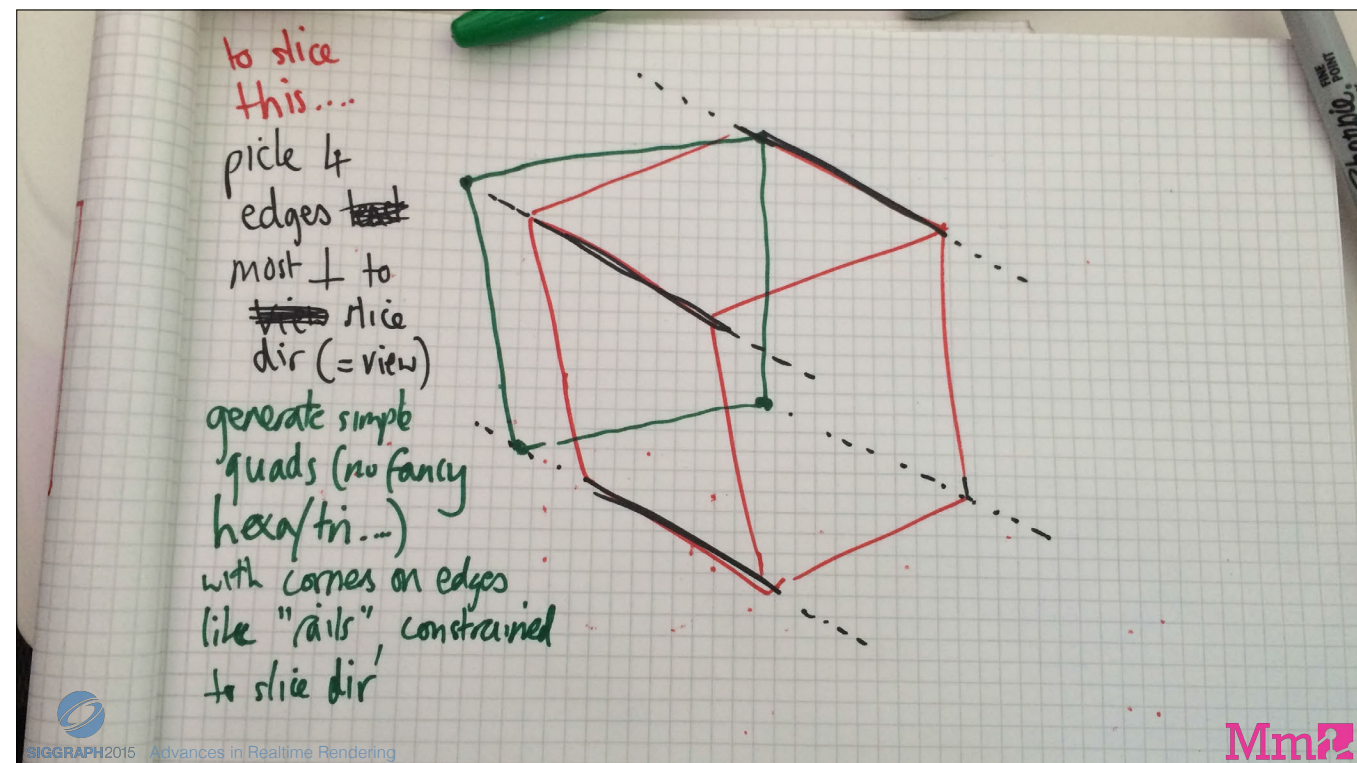 to slice
this....
pick 4
edges
most ⊥ to
slice
dir (= view)
generate simple
quads (no fancy
hexa/tri...)
with corners on edges
like "rails", constrained
to slice dir
FINE
POINT
Sharpie.
SIGGRAPH2015 Advances in Realtime Rendering
Mm